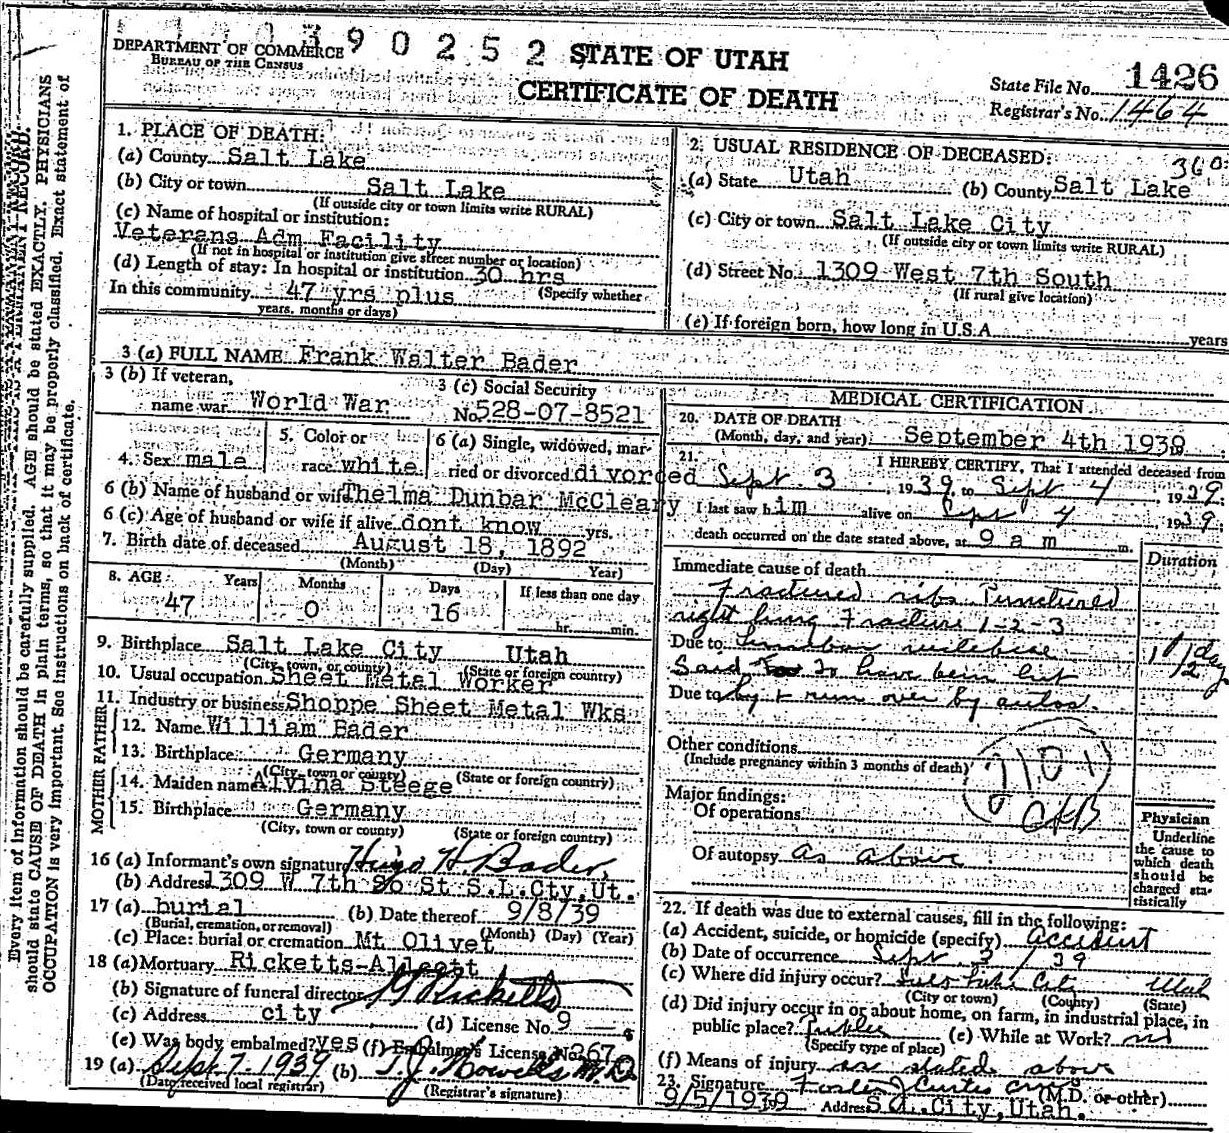 390252
DEPARTMENT OF COMMERCE
BUREAU OF THE CENSUS
STATE OF UTAH
CERTIFICATE OF DEATH
State File No. 1426
Registrar's No. 1464
1. PLACE OF DEATH:
(a) County Salt Lake
(b) City or town Salt Lake
(If outside city or town limits write RURAL)
(c) Name of hospital or institution:
Veterans Adm Facility
(If not in hospital or institution give street number or location)
(d) Length of stay: In hospital or institution 30 hrs
In this community 47 yrs plus (Specify whether
years, months or days)
2. USUAL RESIDENCE OF DECEASED: 360
(a) State Utah (b) County Salt Lake
(c) City or town Salt Lake City
(If outside city or town limits write RURAL)
(d) Street No. 1309 West 7th South
(If rural give location)
(e) If foreign born, how long in U.S.A. years
3 (a) FULL NAME Frank Walter Bader
3 (b) If veteran,
name war World War
3 (c) Social Security
No. 528-07-8521
4. Sex male
5. Color or
race white
6 (a) Single, widowed, mar-
ried or divorced divorced
6 (b) Name of husband or wife Thelma Dunbar McCleary
6 (c) Age of husband or wife if alive dont know yrs.
7. Birth date of deceased August 18, 1892
(Month) (Day) Year)
8. AGE Years Months Days If less than one day
47 0 16 hr. min.
9. Birthplace Salt Lake City Utah
(City, town, or county) (State or foreign country)
10. Usual occupation Sheet Metal Worker
11. Industry or business Shoppe Sheet Metal Wks
FATHER
12. Name William Bader
13. Birthplace Germany
(City, town or county) (State or foreign country)
MOTHER
14. Maiden name Alvina Steege
15. Birthplace Germany
(City, town or county) (State or foreign country)
16 (a) Informant's own signature Hugo H. Bader,
(b) Address 1309 W 7th So St S.L.Cty,Ut.
17 (a) burial (b) Date thereof 9/8/39
(Burial, cremation, or removal) (Month) (Day) (Year)
(c) Place: burial or cremation Mt Olivet
18 (a) Mortuary Ricketts-Allcott
(b) Signature of funeral director Ricketts
(c) Address city (d) License No. 9
(e) Was body embalmed? yes (f) Embalmer's License No. 267
19 (a) Sept 7. 1939 (b) T.J. Howells M.D.
(Date received local registrar) (Registrar's signature)
MEDICAL CERTIFICATION
20. DATE OF DEATH
(Month, day, and year) September 4th 1939
21. I HEREBY CERTIFY, That I attended deceased from
Sept. 3, 1939, to Sept 4, 1939
I last saw him alive on Sept 4 1939.
death occurred on the date stated above, at 9 a m m.
Immediate cause of death Duration
Fractured ribs Punctured
right lung Fracture 1-2-3
Due to Lumbar 1 1/2 days
Said to have been hit
Due to by & run over by autos.
Other conditions
(Include pregnancy within 3 months of death)
Major findings:
Of operations
Of autopsy as above
Physician
Underline
the cause to
which death
should be
charged sta-
tistically
22. If death was due to external causes, fill in the following:
(a) Accident, suicide, or homicide (specify) accident
(b) Date of occurrence Sept. 3 / 39
(c) Where did injury occur? Salt Lake City Utah
(City or town) (County) (State)
(d) Did injury occur in or about home, on farm, in industrial place, in
public place? Public (e) While at Work? no
(Specify type of place)
(f) Means of injury as stated above
23. Signature Curtis (M.D. or other)
9/5/1939 Address S.L. City, Utah.
Every item of information should be carefully supplied. AGE should be stated EXACTLY. PHYSICIANS
should state CAUSE OF DEATH in plain terms, so that it may be properly classified. Exact statement of
OCCUPATION is very important. See instructions on back of certificate.